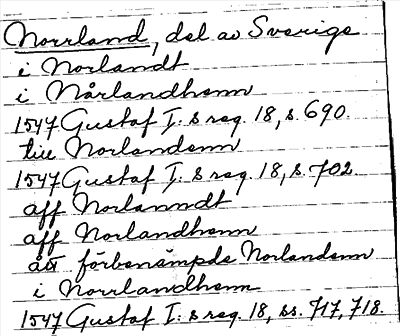 Norrland, del av Sverige
i Norlandt
i Nårlandhenn
1547 Gustaf I:s reg. 18, s. 690.
till Norlandenn
1547 Gustaf I:s reg. 18, s. 702
aff Norlanndt
aff Norlandhenn
ått förbenämpde Norlandenn
i Norrlandhenn
1547 Gustaf I:s reg. 18, ss. 717, 718.